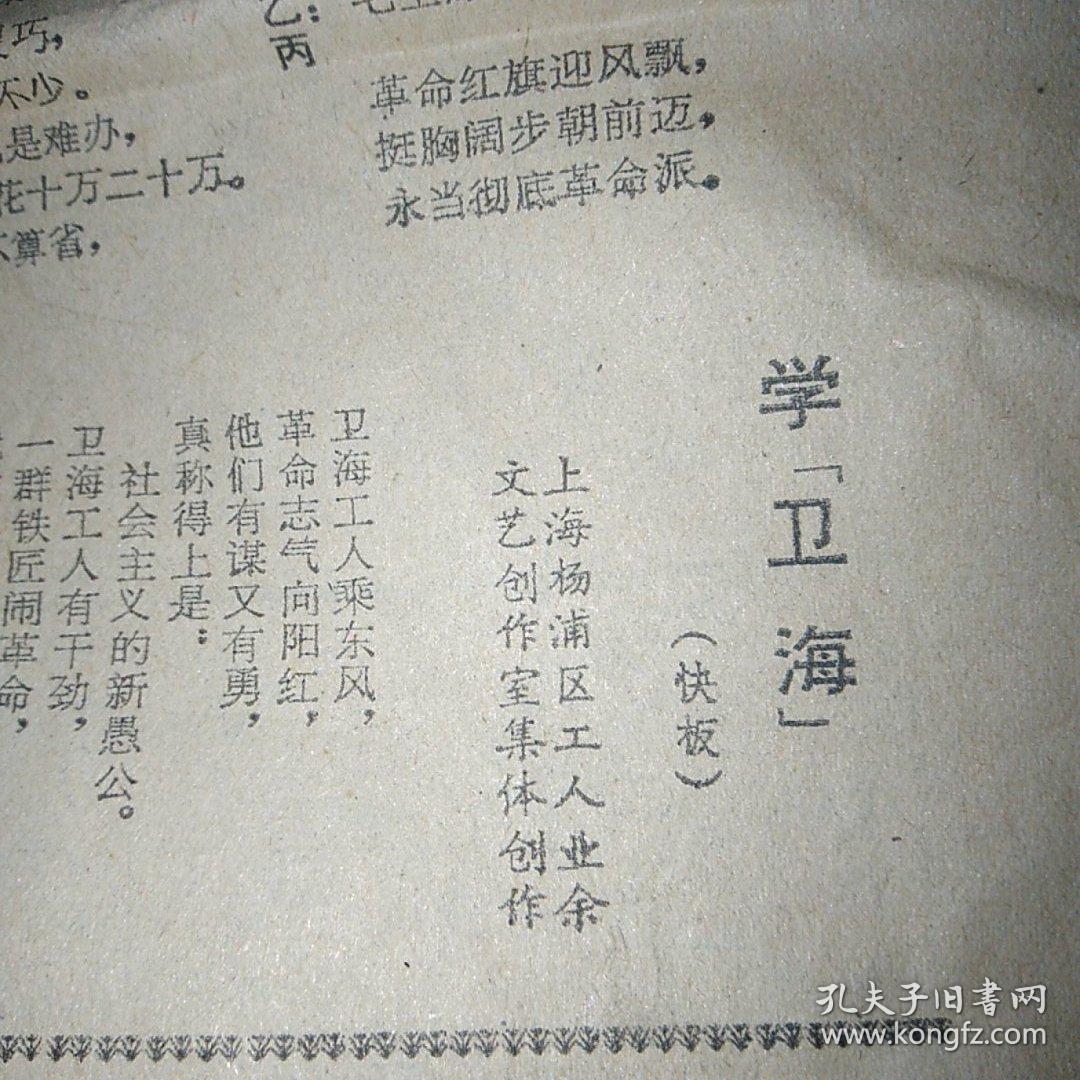 巧，
不少。
是难办，
花十万二十万。
不算省，
乙：
丙
革命红旗迎风飘，
挺胸阔步朝前迈，
永当彻底革命派。
学「卫海」
（快板）
上海杨浦区工人业余
文艺创作室集体创作
卫海工人乘东风，
革命志气向阳红，
他们有谋又有勇，
真称得上是：
社会主义的新愚公。
卫海工人有干劲，
一群铁匠闹革命，
孔夫子旧书网
www.kongfz.com